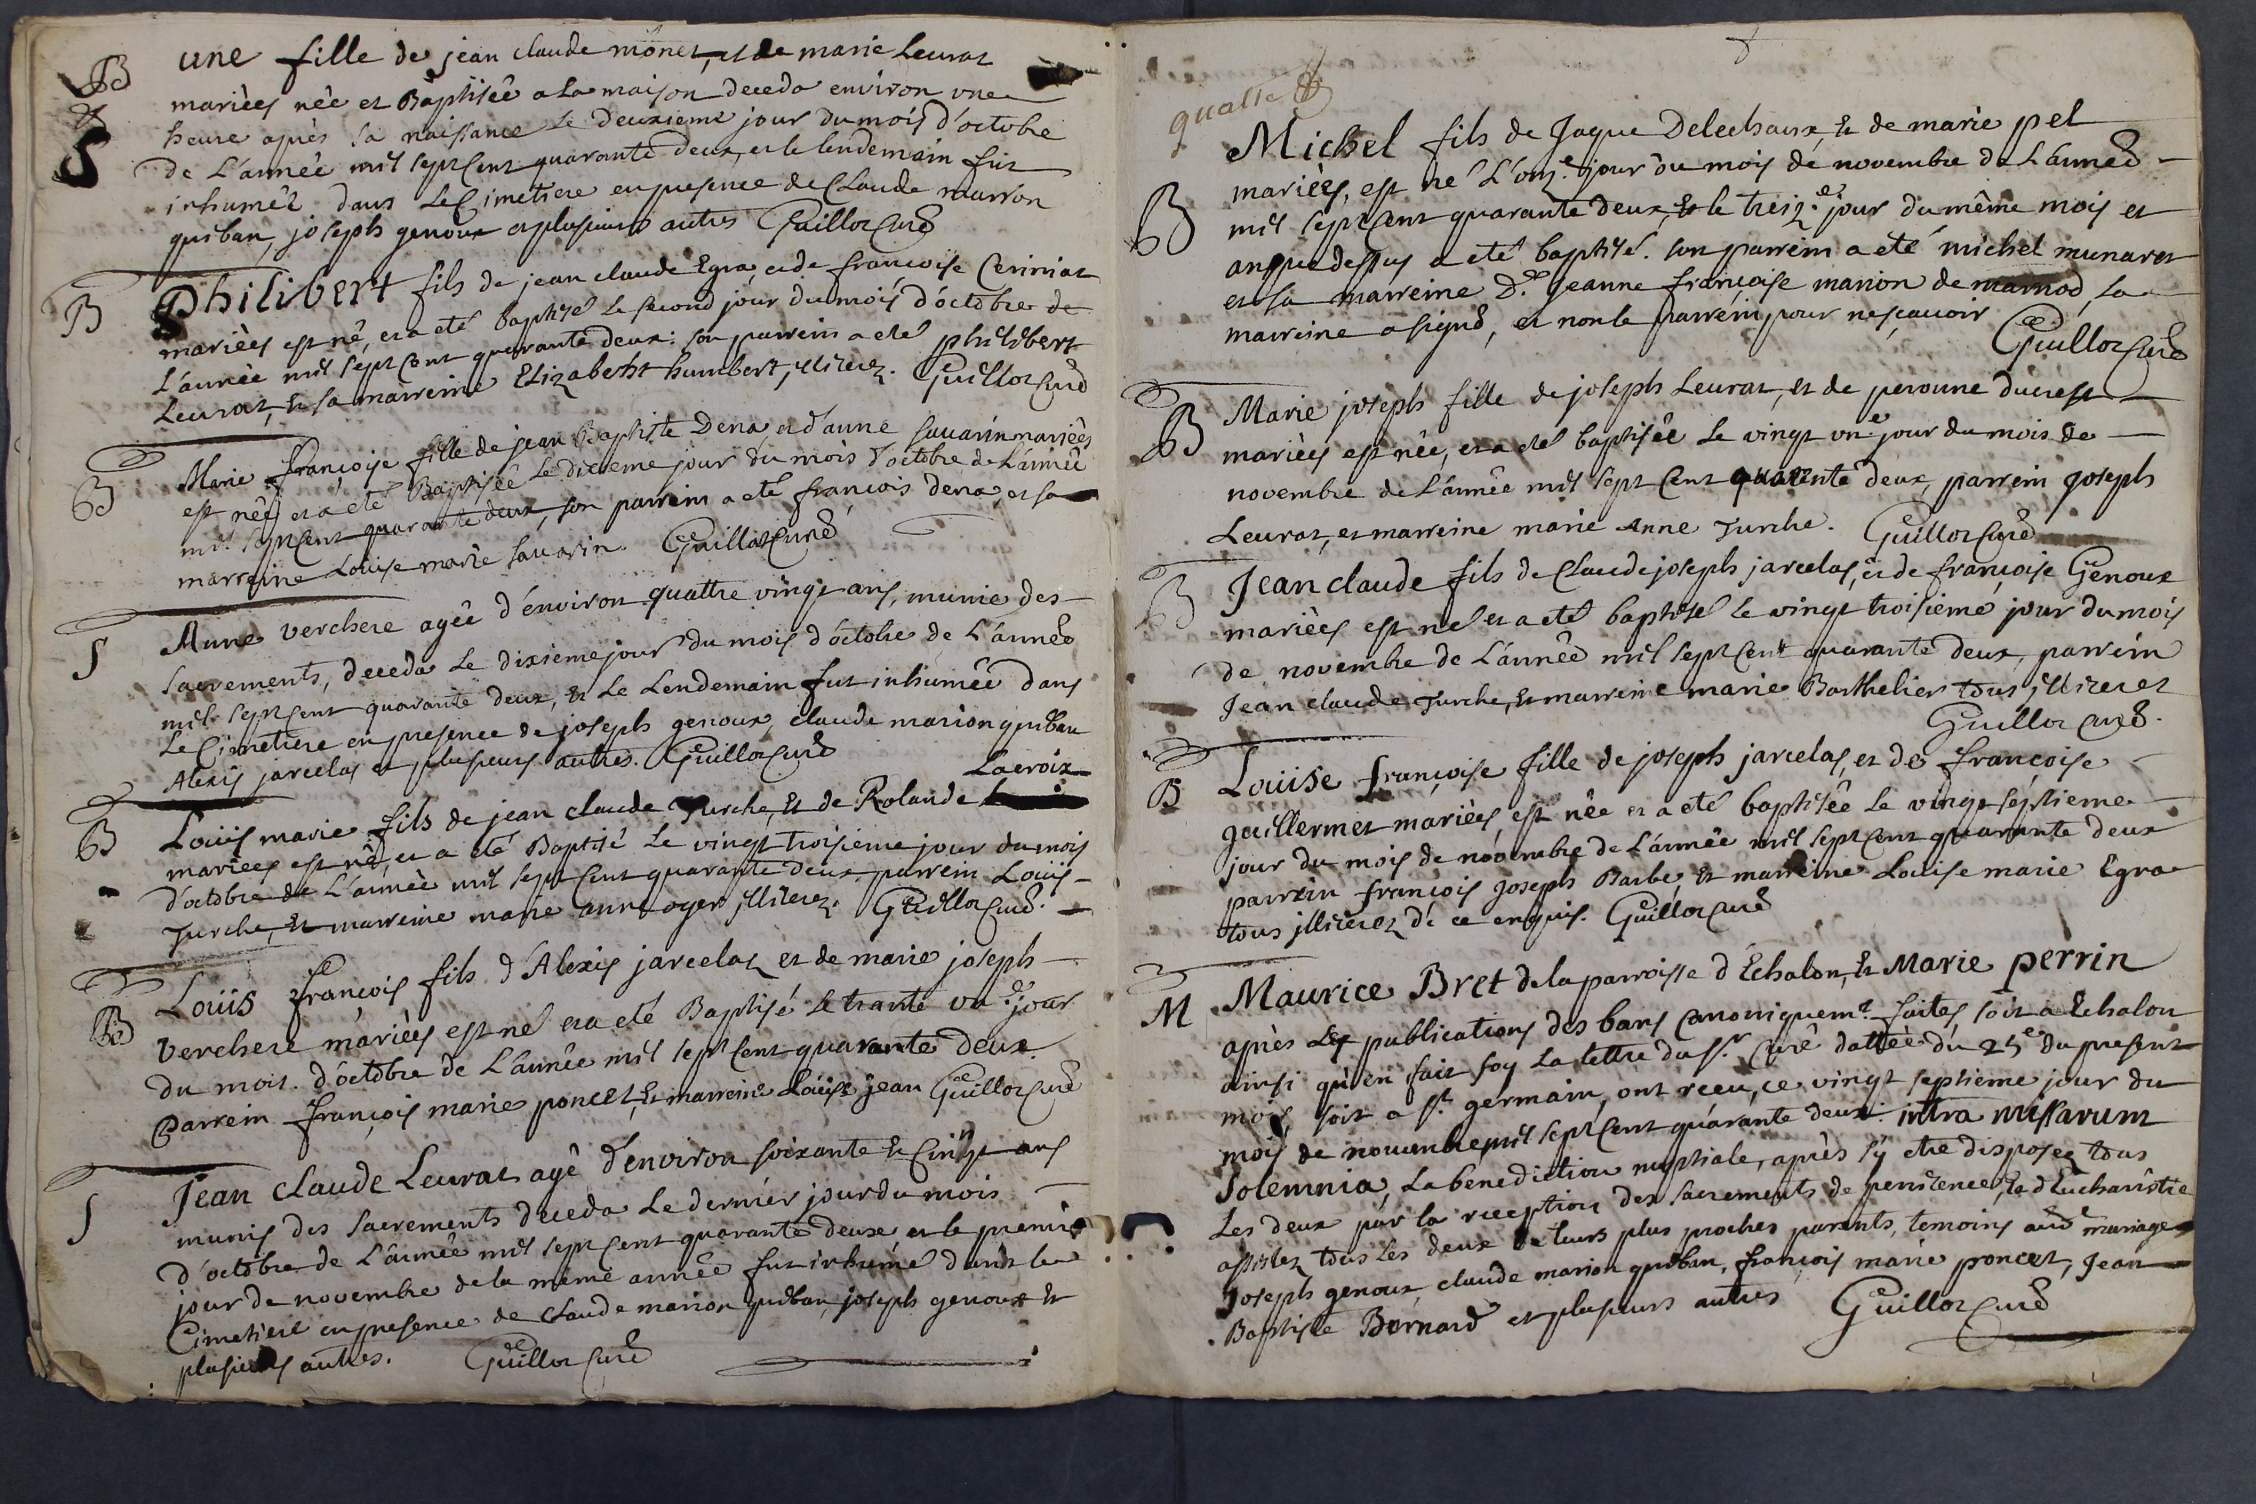 B une fille de jean claude mônet, et de marie Leurat
marièes née et Baptisée a la maison deceda environ une
& S heure après sa naissance le deuxieme jour du mois d'octobe
de L'année mil sept Cent quarante deux, et le lendemain fut
inhumée dans le Cimetiere en presence de Claude marion
quiban, joseph genoux et plusieurs autres Guillot Curé
B Philibert fils de jean claude Egra, et de francoise Ceriniat
mariées est né, et a eté baptisé le second jour du mois d'octobre de
L'année mil sept Cent quarante deux: son parrein a eté philibert
Leurat, et sa marreine Elizabetht humbert, illiterez. Guillot Curé
B Marie françoise fille de jean Baptiste Dena et d'anne savarin mariées
est née, et a eté Baptisée le dixieme jour du mois d'octobre de L'année
mil sept Cent quarante deux, son parrein a eté francois dena, et sa
marreine Louise marie savarin. Guillot Curé
S Anne verchere agée d'environ quattre vingt ans, munie des
sacrements, deceda le dixieme jour du mois d'octobre de L'année
mil sept Cent quarante deux, et le Lendemain fut inhumée dans
Le Cimetiere en presence de joseph genoux, claude marion quiban
Alexis jarcelas et plusieurs autres. Guillot Curé
B Loüis marie fils de jean claude Turche, et de Rolande Lacroix
mariees est né, et a eté Baptisé le vingt troisieme jour du mois
d'octobre de L'année mil sept Cent quarante deux, parrein Loüis
Turche, et marreine marie anne oger illiterez. Guillot Curé.
B Loüis françois fils d'Alexis jarcelat et de marie joseph
verchere mariées est né et a eté Baptisé le trante un.e jour
du mois d'octobre de L'année mil sept Cent quarante deux.
Parrein françois marie poncet, et marreine Loüise jean Guillot Curé
S Jean Claude Leurat agé d'environ soixante et Cinqt ans
munis des sacrements deceda le dernier jour du mois
d'octobre de L'année mil sept Cent quarante deux et le premie
jour de novembre de la meme année fut inhumé dans le
Cimetiere en presence de Claude marion quiban, joseph genoux et
plusieurs autres. Guillot Curé
quatre
Michel fils de Jaque Delechaux, et de marie pel
mariées, est né L'onz.e jour du mois de novembre de L'année
B mil sept Cent quarante deux, et le treiz.e jour du même mois et
an que dessus a eté baptisé. son parrein a eté michel munaret
et sa marreine D.e Jeanne françoise marion de marnod, la
marreine a signé, et non le parrein, pour ne sçavoir
Guillot Curé
B Marie joseph fille de joseph Leurat, et de peronne ducrest
mariées est née, et a eté baptisée le vingt un.e jour du mois de
novembre de L'année mil sept Cent quarente deux, parrein joseph
Leurat, et marreine marie Anne Turche. Guillot Curé
B Jean claude fils de Claude joseph jarcelas, et de françoise Genoux
mariées est né et a eté baptisé le vingt troisieme jour du mois
de novembre de L'année mil sept Cent quarante deux, parrein
Jean claude Turche, et marreine marie Barthelier tous illiterez
Guillot Curé.
B Loüise françoise fille de joseph jarcelas, et de françoise
guillermet mariées, est née et a eté baptisée le vingt septieme
jour du mois de novembre de L'année mil sept Cent quarante deux
parrein françois joseph Barbe, et marreine Loüise marie Egra
tous illiterez de ce enquis. Guillot Curé
M Maurice Bret de la parroisse d'Echalon, et Marie perrin
après Les publications des bans Canoniquem.t faites soit a Echalon
ainsi qu'en fait foy La lettre du s.r Curé dattée du 25.e du present
mois, soit a s.t germain, ont receu, ce vingt septieme jour du
mois de novembre mil sept Cent quarante deux. intra missarum
solemnia, La benediction nuptiale, après s'y etre disposez tous
Les deux par la reception des sacrements de penitence, et d'Eucharistie
assistez tous les deux de leurs plus proches parents, temoins aud.t mariage
Joseph genoux, claude marion quiban, françois marie poncet, Jean
Baptiste Bernard et plusieurs autres Guillot Curé